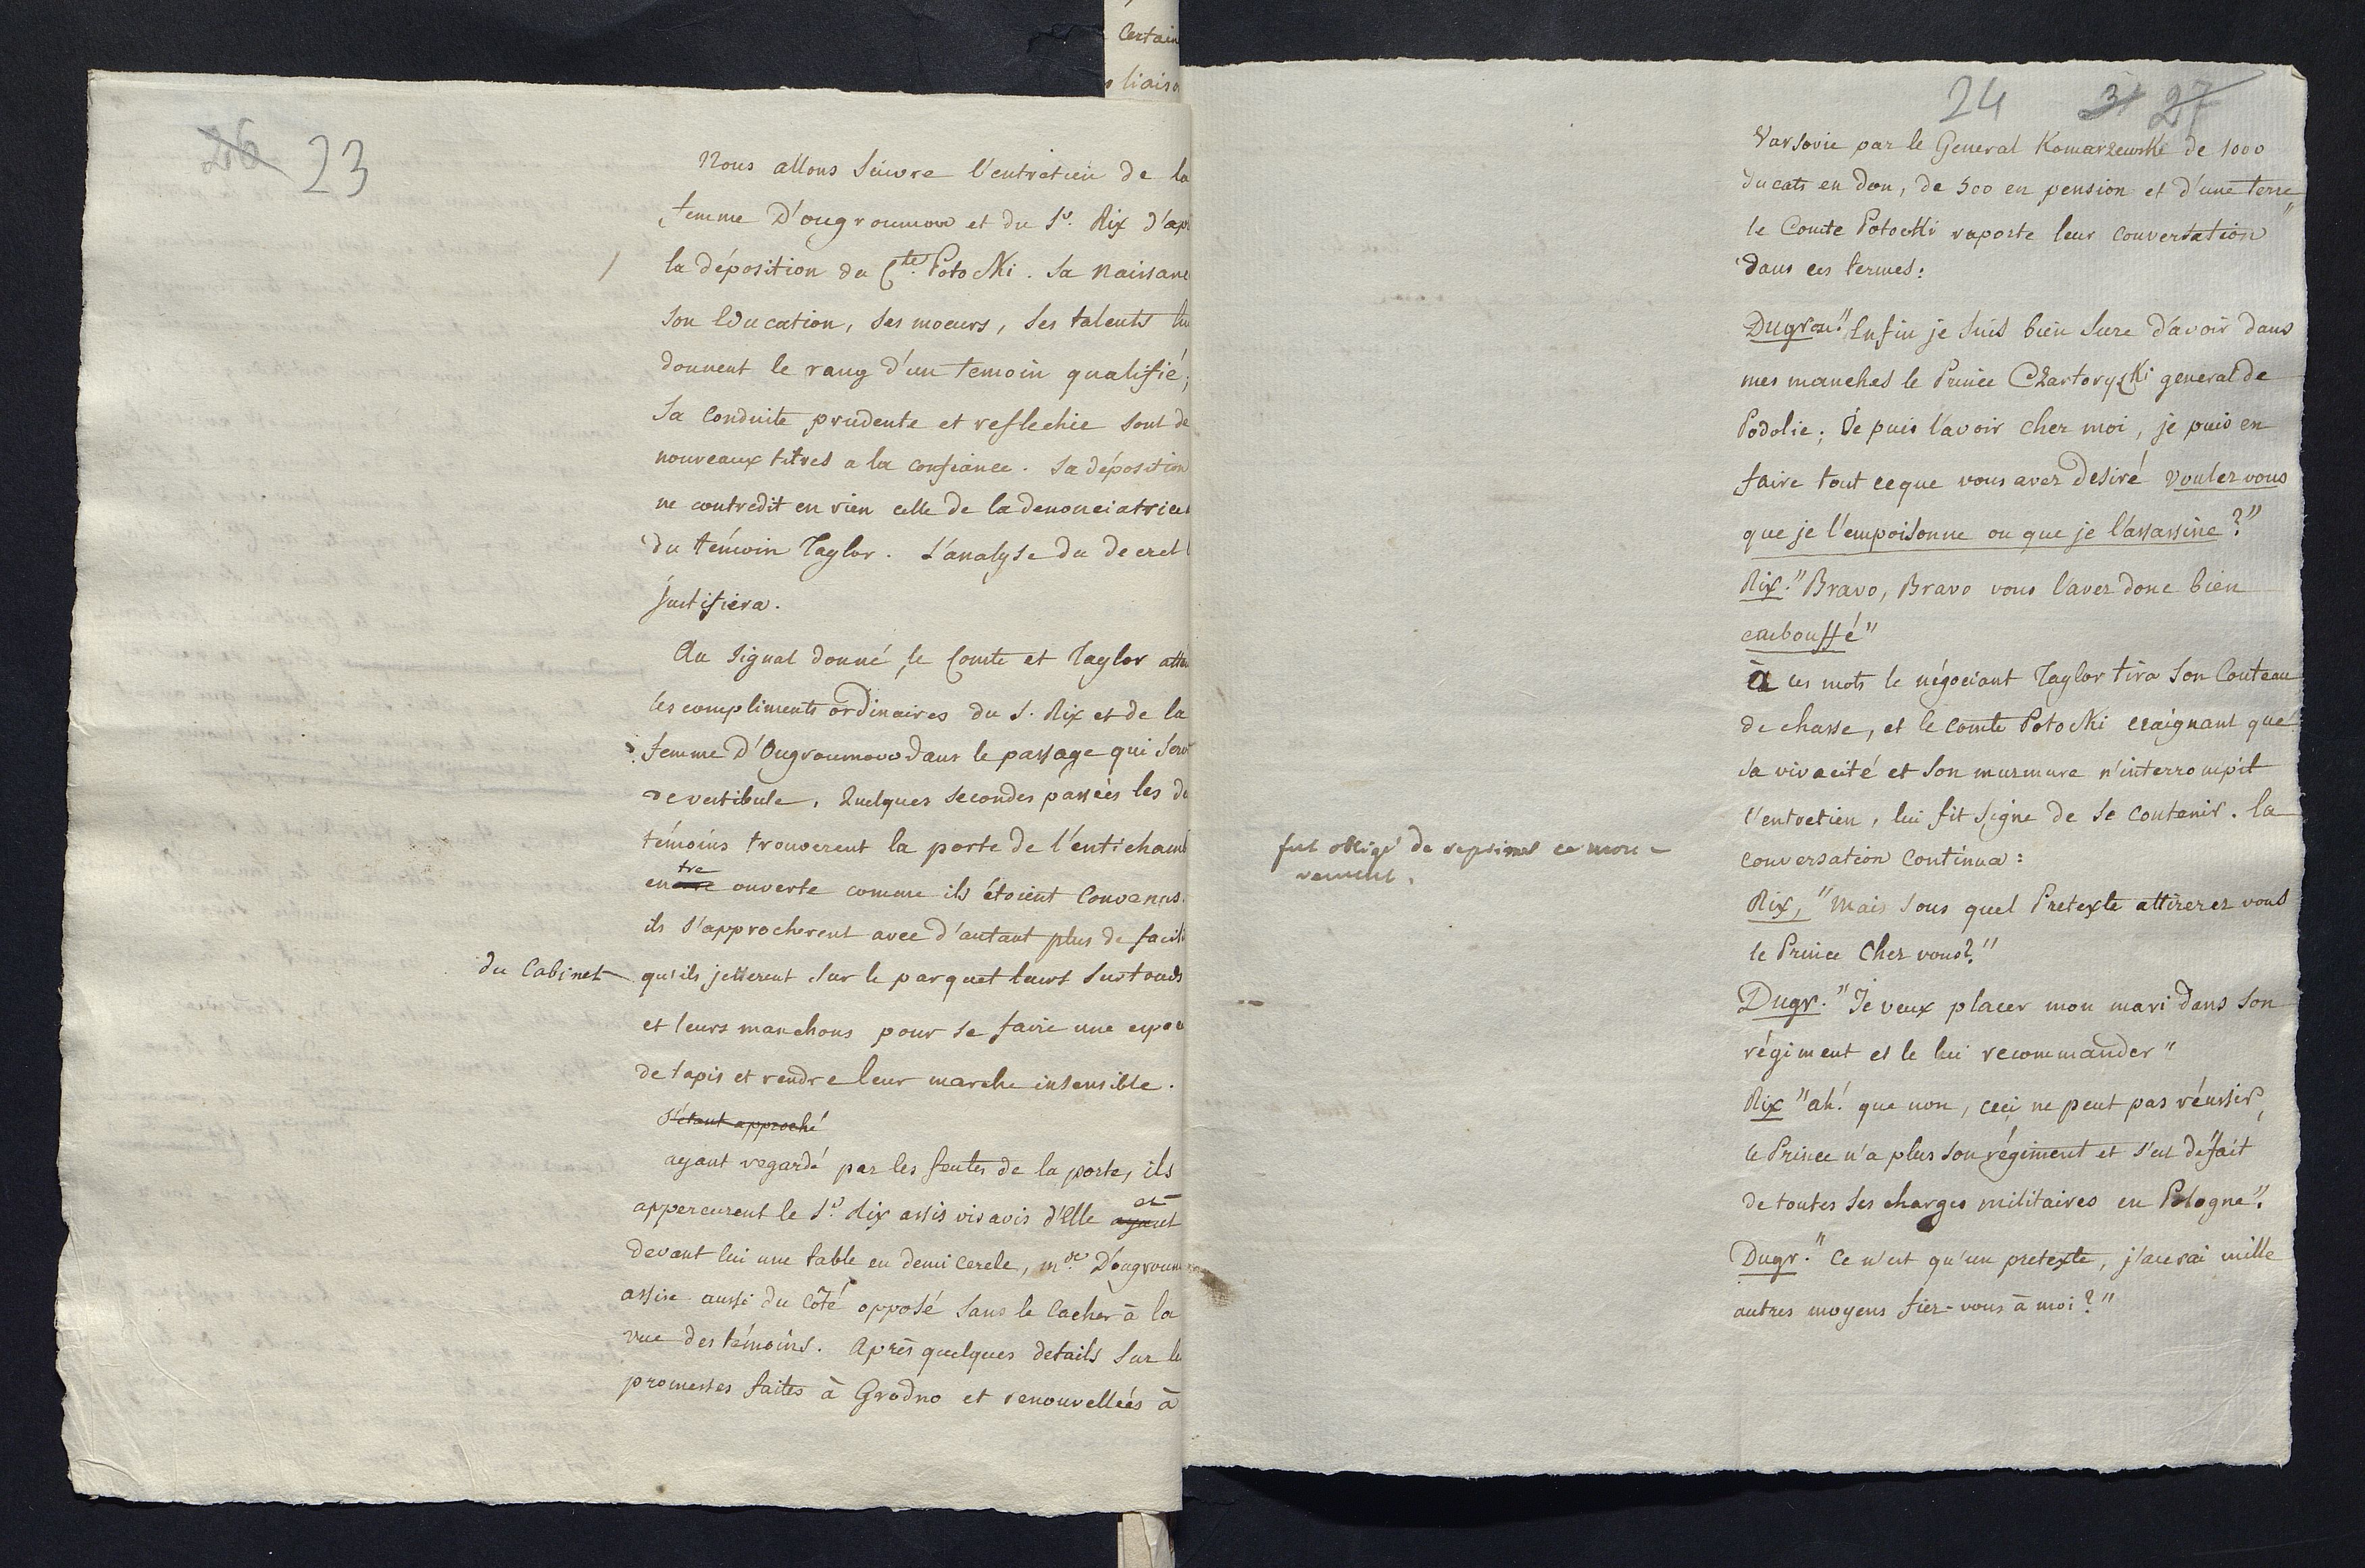 certain
liaiso
26 23
Nous allons suivre l'entretien de la
femme D'ougroumow et du Sr. Rix d'apr
la déposition du Cte. Potocki. Sa naissanc
son Education, ses moeurs, ses talents lu
donnent le rang d'un temoin qualifié;
Sa conduite prudente et reflechie sont de
nouveaux titres a la confiance. Sa déposition
ne contredit en rien celle de la denonciatrice
du témoin Taylor. L'analyse du decret l
justifiera.
Au signal donné, le Comte et Taylor atten
les compliments ordinaires du S. Rix et de la
femme D'Ougroumow dans le passage qui ser
de vestibule. Quelques secondes passées les de
témoins trouverent la porte de l'entichamb
entre ouverte comme ils étoient convenus.
ils s'approcherent avec d'autant plus de facil
du Cabinet
qu'ils jetterent sur le parquet leurs surtouts
et leurs manchons pour se faire une espe
de tapis et rendre leur marche insensible.
S'étant approché
ayant regardé par les fentes de la porte, ils
apperçurent le Sr. Rix assis vis avis d'Elle ayant et
devant lui une table en demi cercle, mde. D'ougroum
assise aussi du côté opposé sans le cacher à la
vue des témoins. Après quelques details sur le
promesses faites à Grodno et renouvellées à
24 31 27
Varsovie par le General Komarzewski de 1000
ducats en don, de 500 en pension et d'une terre,
le Comte Potocki raporte leur conversation
dans ces termes:
Dugrou." Enfin je suis bien sure d'avoir dans
mes manches le Prince Czartoryski general de
Podolie; Je puis l'avoir chez moi, je puis en
faire tout ceque vous avez desiré voulez vous
que je l'empoisonne ou que je l'assassine?"
Rix." Bravo, Bravo vous l'avez donc bien
embouffé"
à ces mots le négociant Taylor tira son Couteau
de chasse, et le comte Potocki craignant que
sa vivacité et son murmure n'interrompit
l'entretien, lui fit signe de se contenir. la
fut obligé de reprimer ce mou-
vement.
conversation continua:
Rix, "Mais sous quel Pretexte attirerez vous
le Prince chez vous?"
Dugr. "Je veux placer mon mari dans son
régiment et le lui recommander"
Rix "ah! que non, ceci ne peut pas réussir,
le Prince n'a plus son régiment et s'est défait
de toutes ses charges militaires en Pologne".
Dugr." Ce n'est qu'un pretexte, j'aurai mille
autres moyens fiez-vous à moi?"